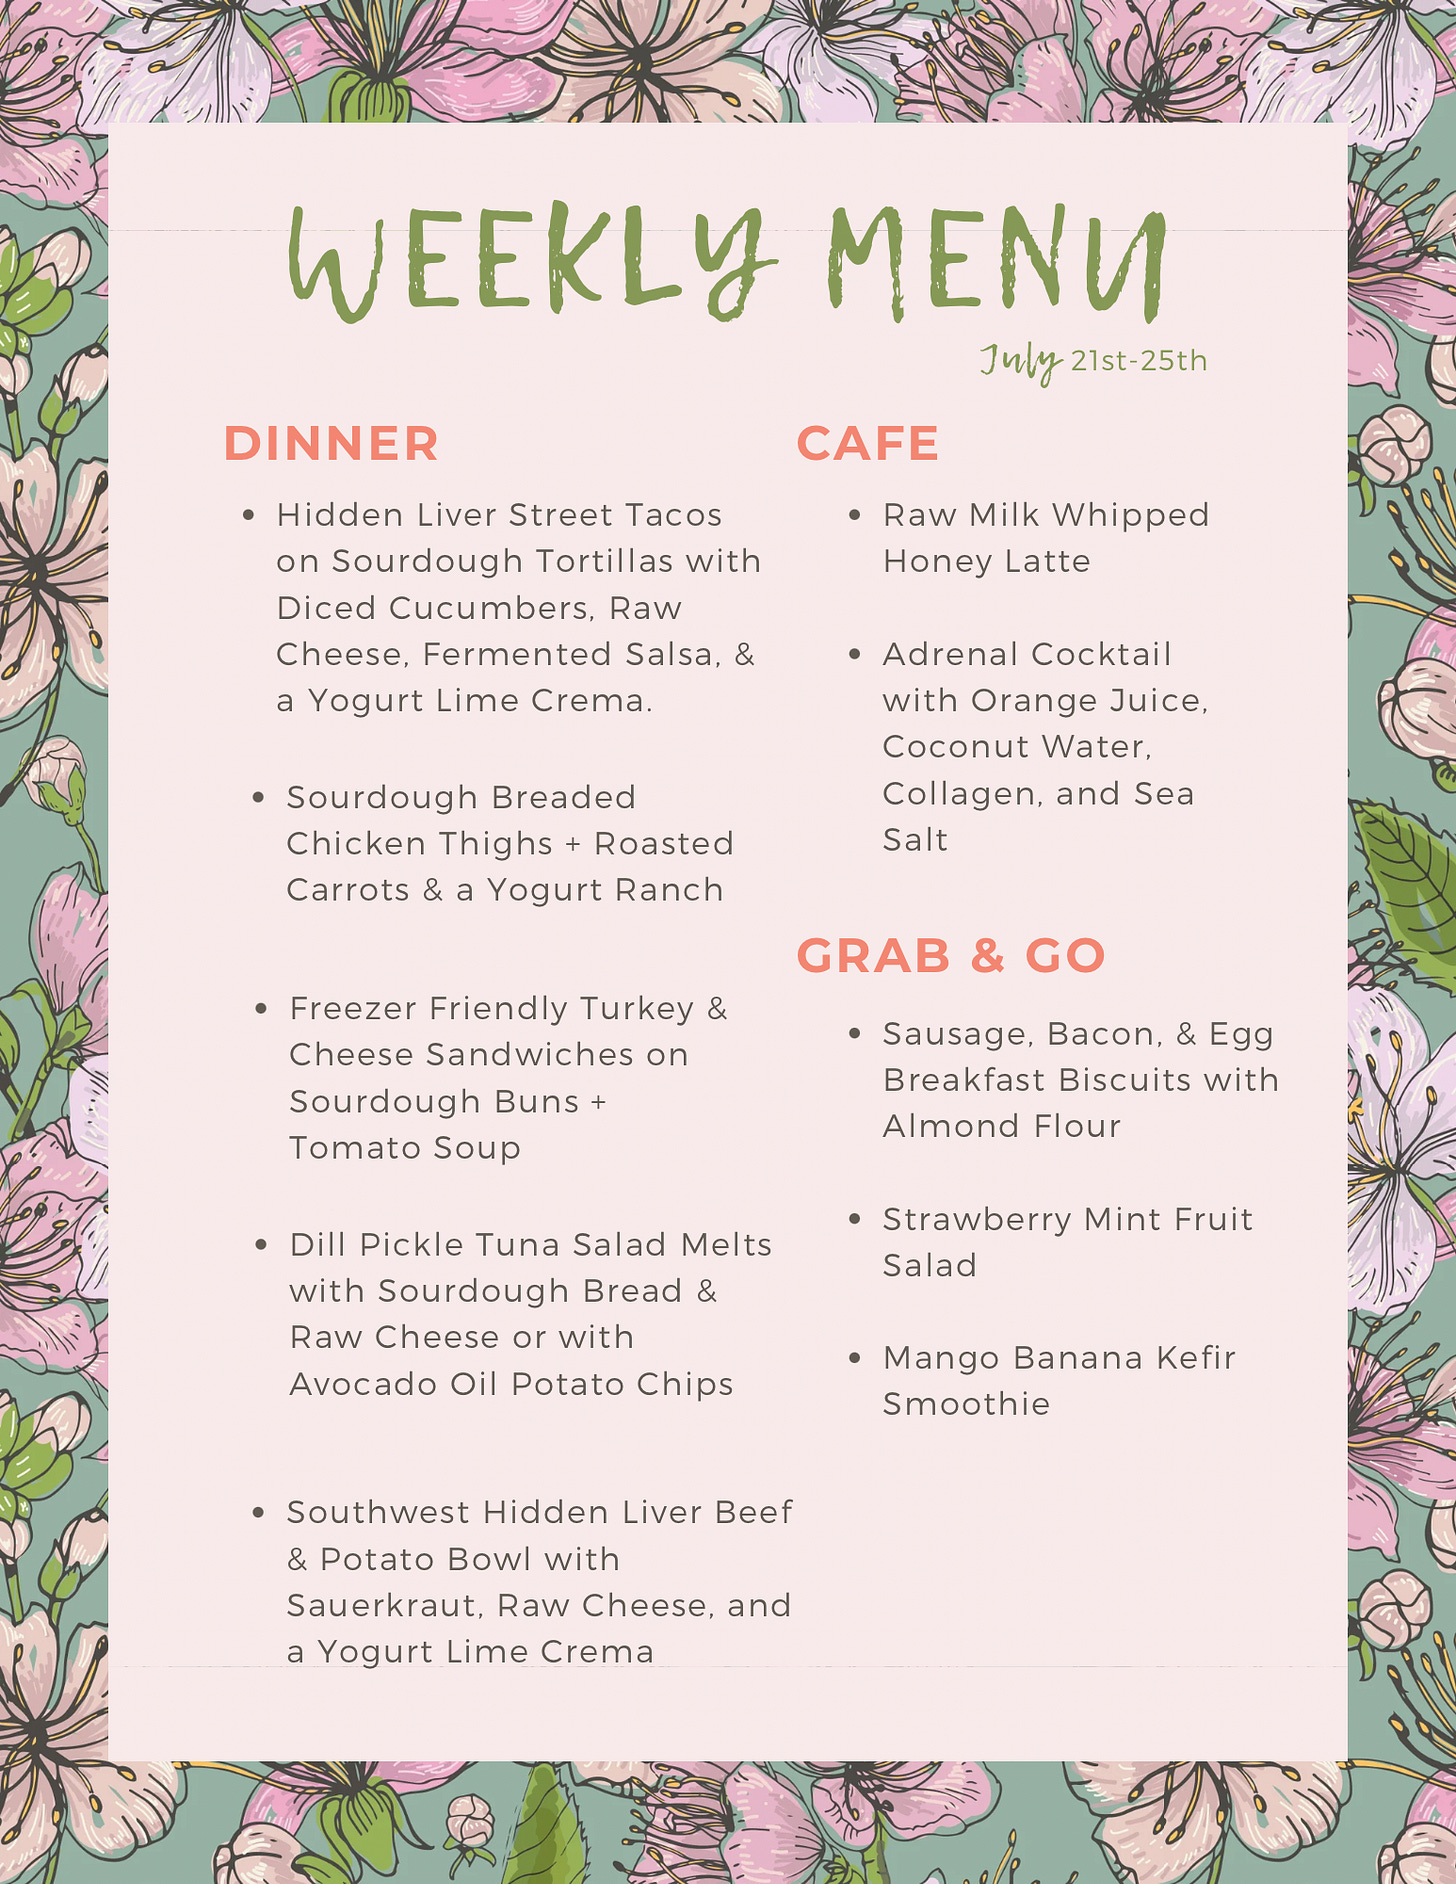 WEEKLY MENU
July 21st-25th
DINNER
• Hidden Liver Street Tacos
on Sourdough Tortillas with
Diced Cucumbers, Raw
Cheese, Fermented Salsa, &
a Yogurt Lime Crema.
• Sourdough Breaded
Chicken Thighs + Roasted
Carrots & a Yogurt Ranch
• Freezer Friendly Turkey &
Cheese Sandwiches on
Sourdough Buns +
Tomato Soup
• Dill Pickle Tuna Salad Melts
with Sourdough Bread &
Raw Cheese or with
Avocado Oil Potato Chips
• Southwest Hidden Liver Beef
& Potato Bowl with
Sauerkraut, Raw Cheese, and
a Yogurt Lime Crema
CAFE
• Raw Milk Whipped
Honey Latte
• Adrenal Cocktail
with Orange Juice,
Coconut Water,
Collagen, and Sea
Salt
GRAB & GO
• Sausage, Bacon, & Egg
Breakfast Biscuits with
Almond Flour
• Strawberry Mint Fruit
Salad
• Mango Banana Kefir
Smoothie